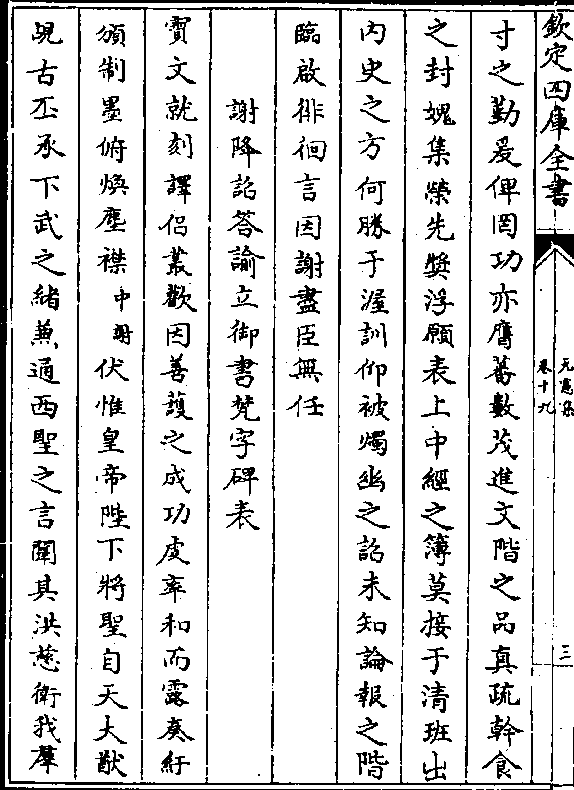 欽定四庫全書
元憲集
卷十九
三
寸之勤爰俾罔功亦膺蕃數茂進文階之品真疏幹食
之封媿集榮先奬浮願表上中經之簿莫接于清班出
内史之方何勝于渥訓仰被燭幽之詔未知論報之階
臨啟徘徊言因謝盡臣無任
謝降詔答諭立御書梵字碑表
寳文就刻譯侣叢歡因善護之成功虔率和而露奏紆
頒制墨俯煥塵襟中謝伏惟皇帝陛下將聖自天大猷
䂓古丕承下武之緒兼通西聖之言闡其洪慈衛我羣